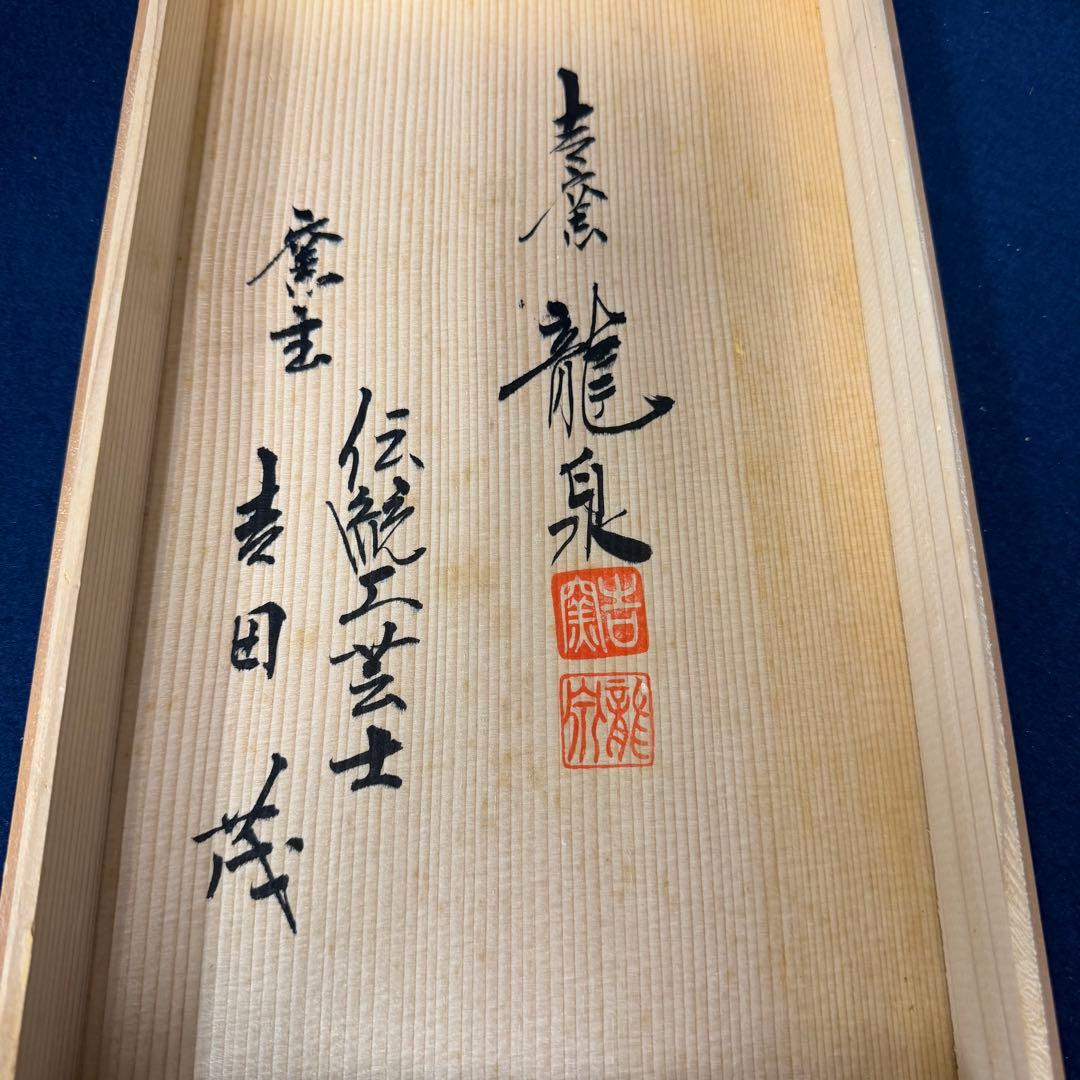 吉窯 龍泉
吉窯
龍泉
伝統工芸士
窯主 吉田 茂